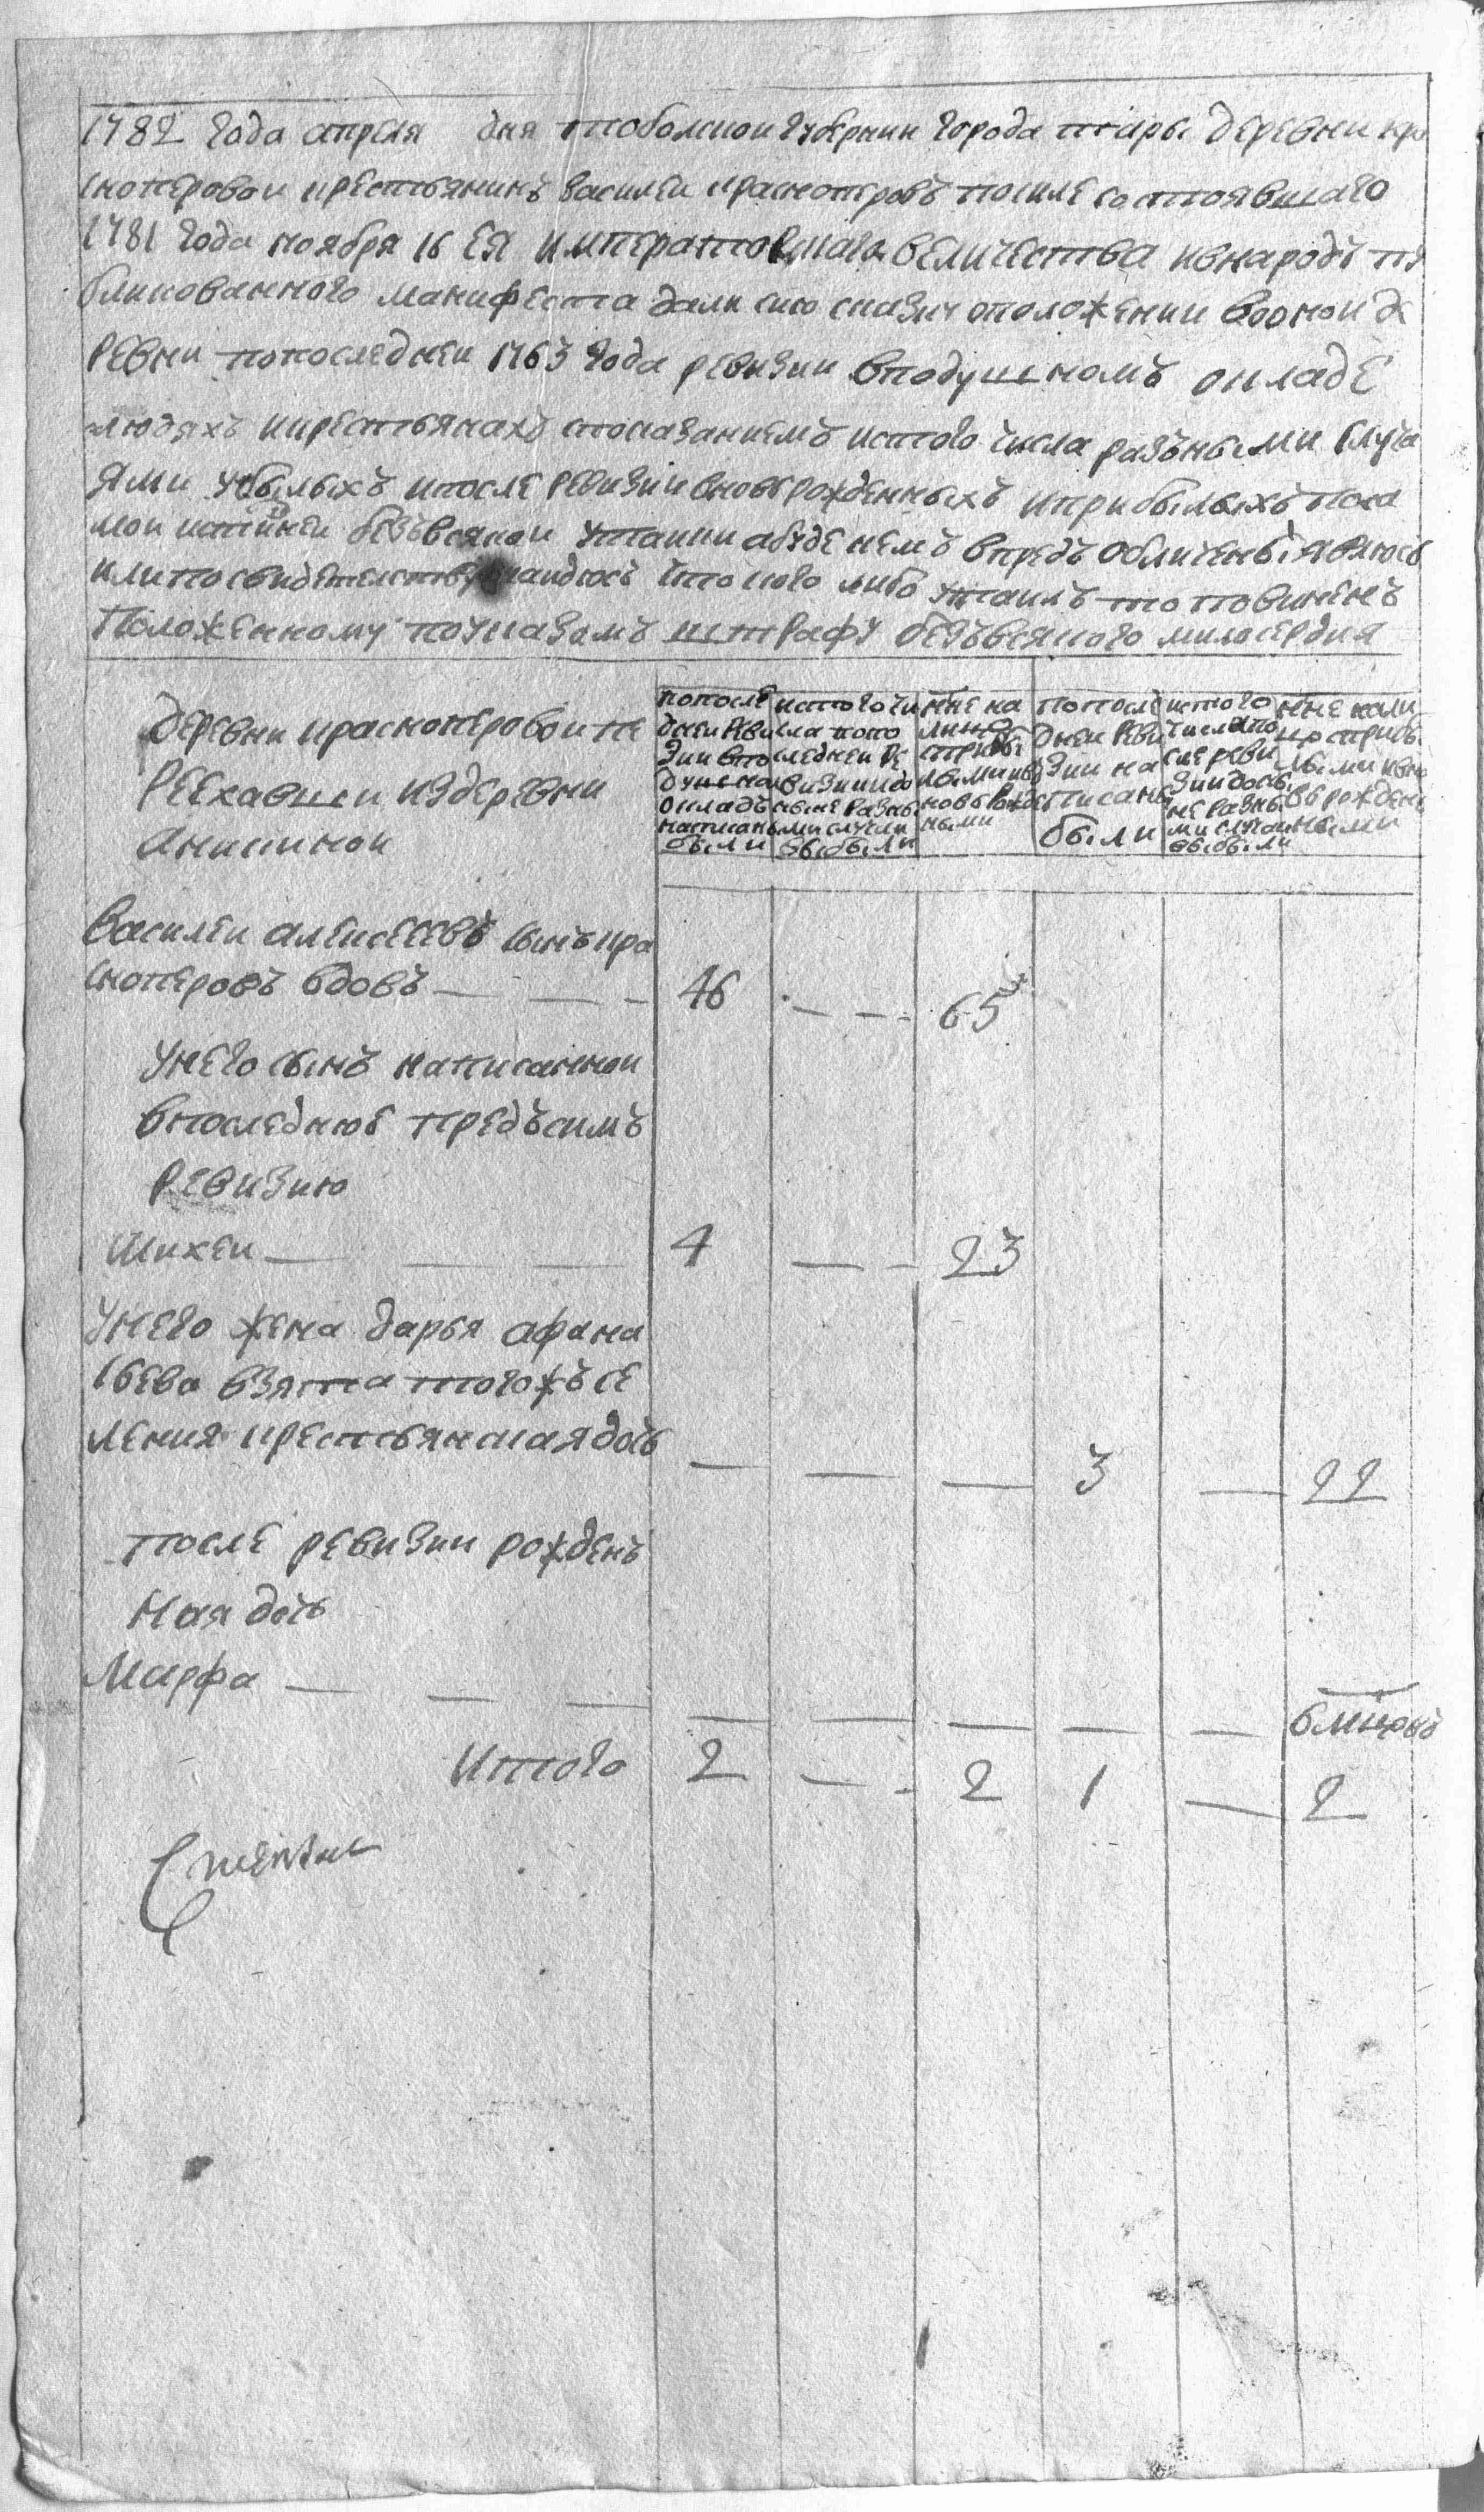 1782 года апреля дня тобольской губернии города тары деревни кра
сноперовой крестьянинъ василей красноперовъ посиле состоявшаго
1781 года ноября 16 ея императорскаго величества ивнародъ пу
бликованного манифеста дали сию сказку оположении воонои де
ревни попоследней 1763 года ревизии вподушномъ окладе
людяхъ икрестьянахъ споказаниемъ истого числа разъными случа
ями убылыхъ ипосле ревизии вновьрожденныхъ иприбылыхъ поса
мои истинней безъвсякои утаики абуде чемъ впредь обличенъ явлюсь
илипосвидетельству найдюсь что кого либо утаилъ то повиненъ
положенному поуказомъ штрафу безъвсякого милосердия
деревни красноперовои пе
реехавшеи издеревни
аникинои
попосле
дней реви
зии впо
душном
окладъ
написаны
были
истого чи
сла попо
следней ре
визиидо
ныне разны
ми случаи
выбыли
ныне на
лицо
сприбы
лыми ив
новь рожде
ными
попосле
дней реви
зии на
писаны
были
истого
числа по
сие реви
зии дось
не разны
ми случаи
выбыли
ныне коли
ко сприбы
лыми ивно
вь рожден
ными
Василеи алексеевъ сынъ кра
сноперовъ вдовъ — — — 46 — — — 65
Унего сынъ написаннои
впоследнюе предъсимъ
ревизию
Михеи — — — 4 — — 23
Унего жена дарья афана
сьева взята тогожъ се
ления крестьянская дочь — — — 3 — 22
после ревизии рожденъ
ная дочь
Марфа — — — — — — — —
Итого 2 — — 2 1 — 2